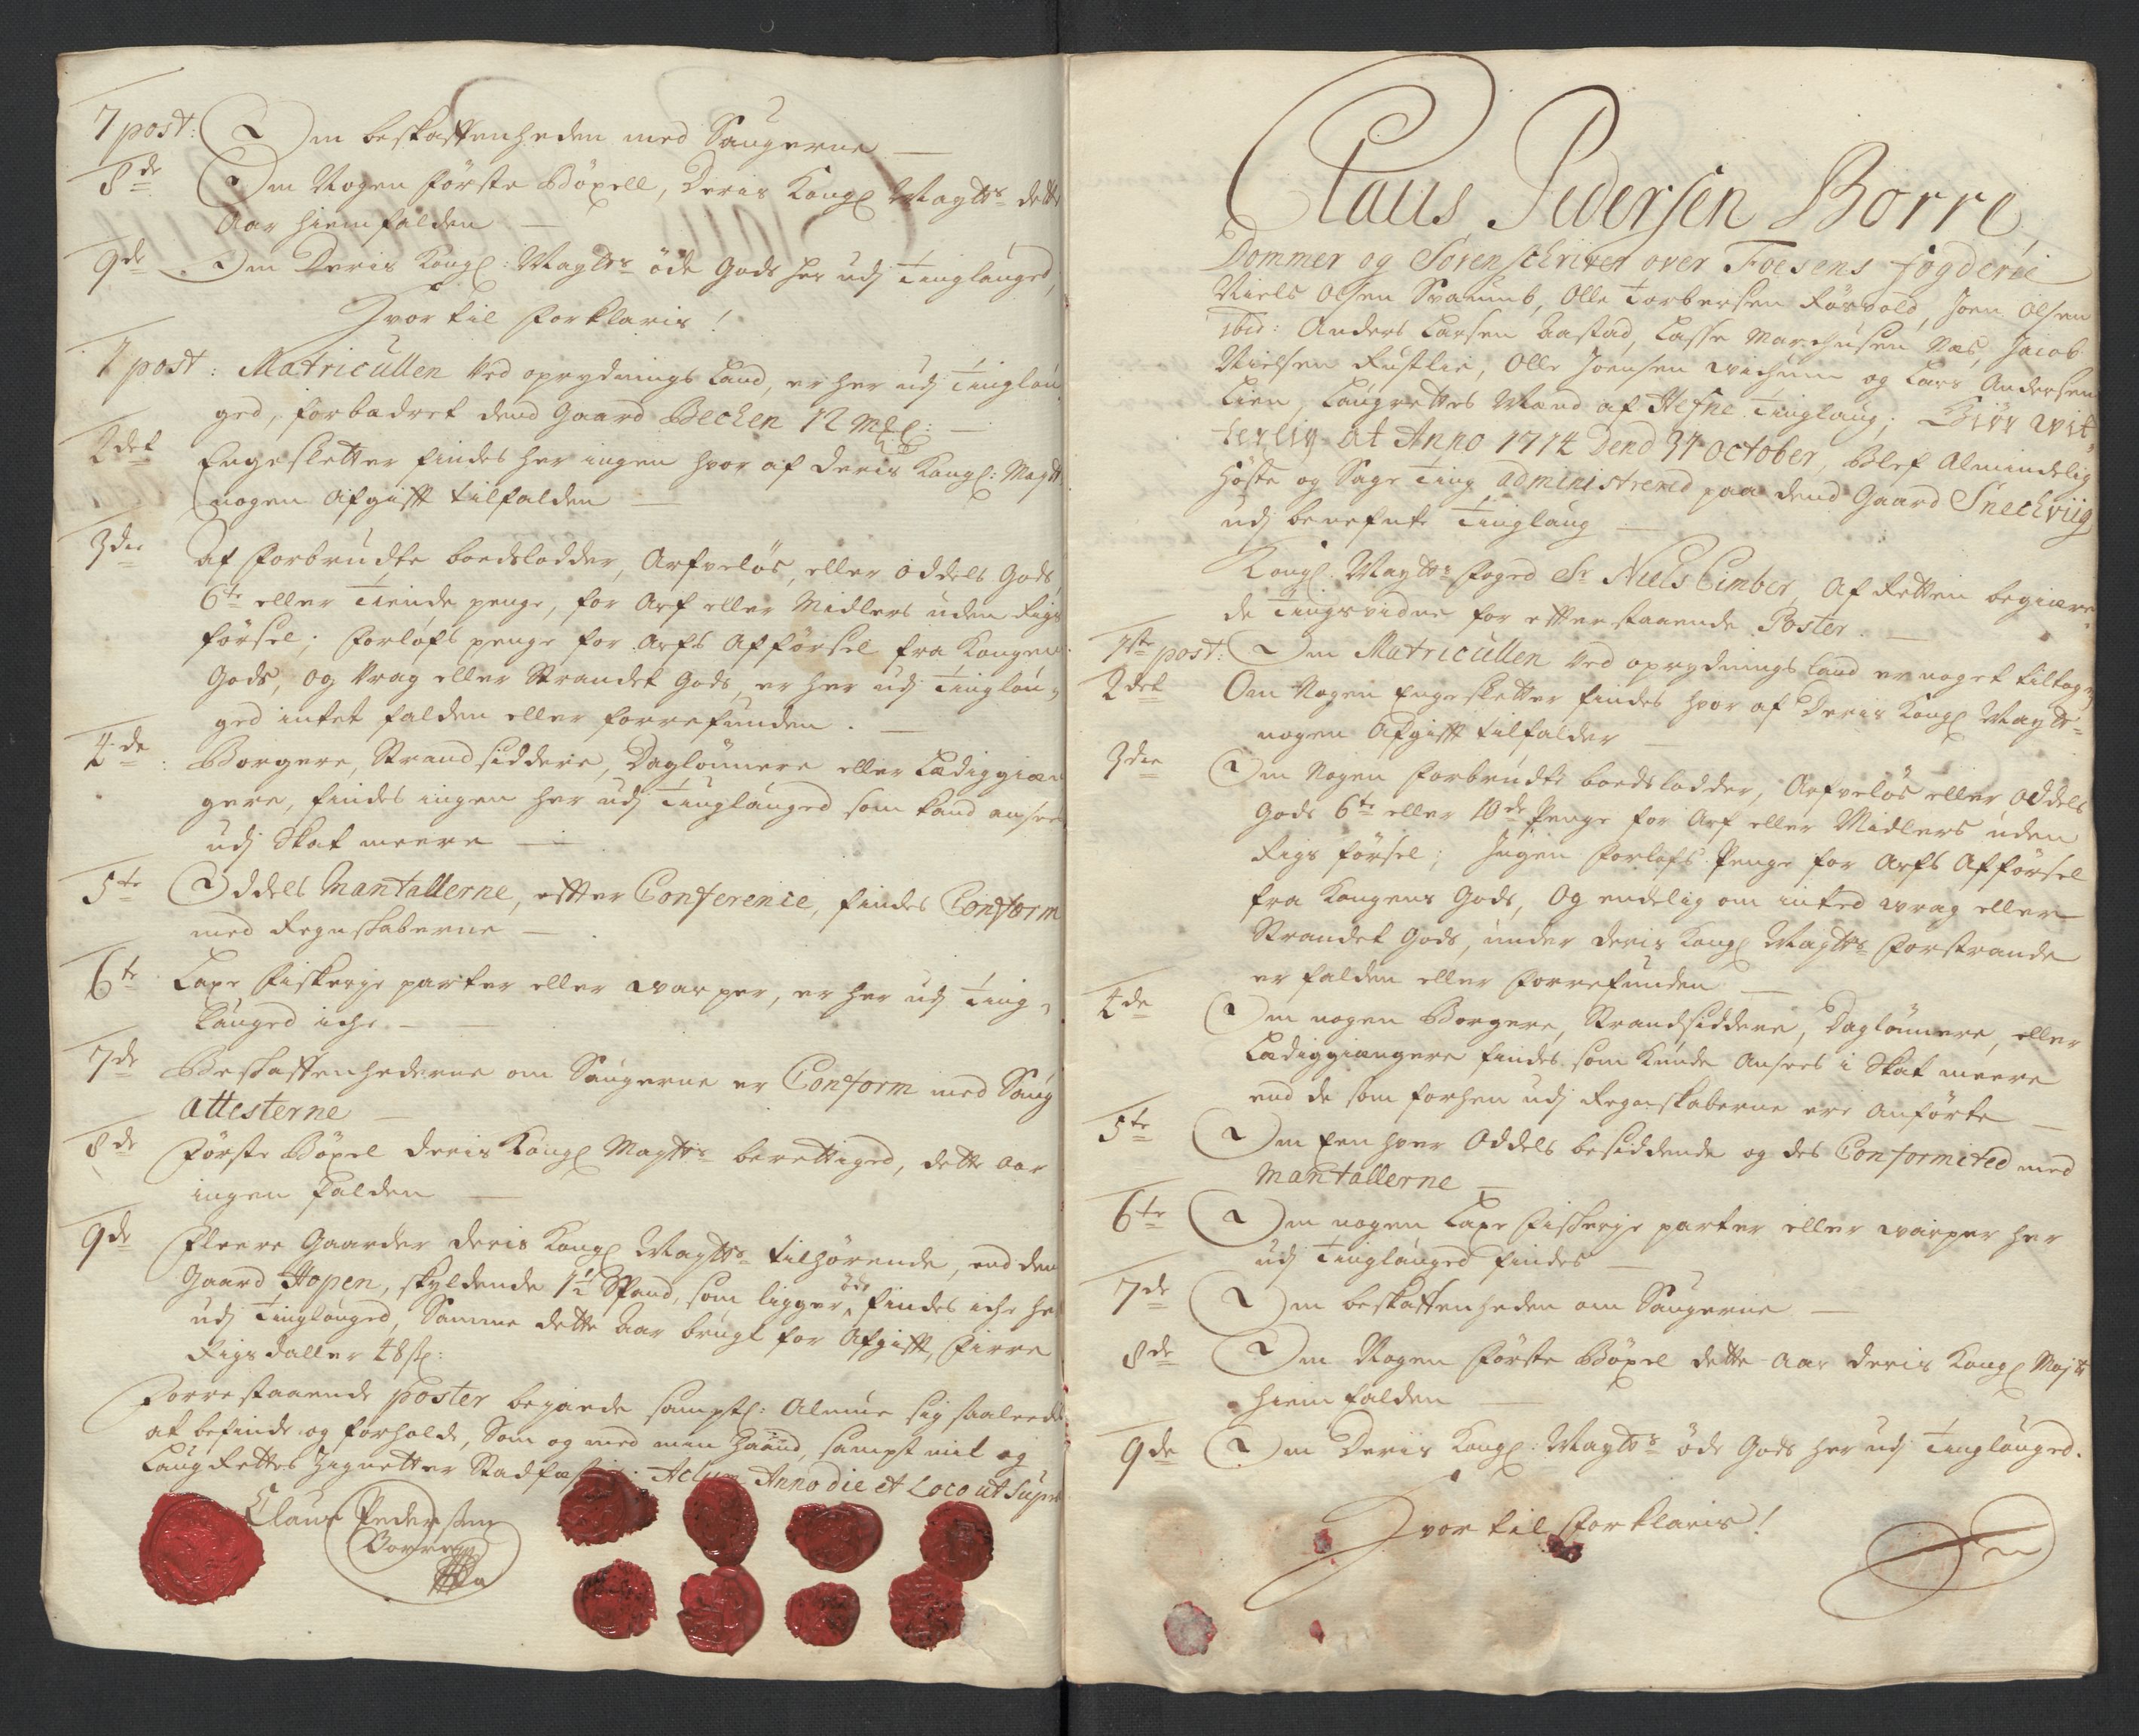 7 post: Om beskaffenheden med Saugerne —
8de Om Nogen Første Böxell, Deris Kongl Maytts dette
Aar hiemfalden —
9de Om Deris Kongl: Maytts öde Gods her udj Tinglauged,
Hvortil forklaris!
1 post: Matricullen Ved oprydnings Land, er her udj Tinglau
ged, forbedret dend Gaard Bechen 12 mkl: —
2det Engesletter findes her ingen hvor af Deris Kongl: Maytt
nogen Afgifft tilfalden —
3die af Forbrudte boedslodder, Arfveløs, eller Oddels Gods,
6te eller Tiende penge, for Arf eller Midlers uden Rigs
førsel; Forlofs penge for Arfs Afførsel fra Kongens
Gods, og Vrag eller Strandet Gods, er her udj Tinglau,
ged intet falden eller forrefunden. —
4de: Borgere, Strandsiddere, Daglønnere eller Lædiggiæn
gere, findes ingen her udj Tinglauged som kand ansees
udj Skat meere —
5te Oddels Mantallerne, effter Conference, findes Conform
med Regnskaberne —
6te Laxe Fiskerje parter eller warper, er her udj Ting,
lauged iche — —
7de Beskaffenhederne om Saugerne er Conform med Saug
Attesterne —
8de Første Böxel Deris Kongl Maytts berettiged, dette Aar
ingen falden —
9de Fleere Gaarder Deris Kongl Maytts tilhørende, end den
Gaard Hopen, skyldende 1½ Spand, som ligger öde findes iche her
udj Tinglauged, Samme dette Aar brugt for Afgifft, Firre
Rigsdaller 48 s:
Forrestaaende poster bejaede samptl: Almue sig saaleedes
at befinde og forholde, Som og med min Haand, sampt mit og
Laugrettes Zignetter Stadfæstes. Actum Anno die et Loco ut Supra
Claus Pedersen
Borre
Claus Pedersen Borre,
Dommer og Sorenschriver over Foesens fogderie
Niels Olsen Svaumb, Olle Torbersen Rørvold, Joen Olsen
ibid: Anders Larsen Aastad, Lasse Marchusen Næs, Jacob
Nielsen Rustlie, Olle Joensen Wichum og Lars Andersen
Lien, Laugrettes Mænd af Hefne Tinglaug; Giör Vit,
terlig at Anno 1714 Dend 31 October, Blef Almindelig
Høste og Sage Ting administrered paa dend Gaard Snechviig
udj benefnte Tinglaug —
Kongl: Maytts Foged Sr Niels Cimber, Af Retten begiære,
de Tingsvidne for effterstaaende Poster. —
1ste post: Om Matricullen Ved oprydnings Land er noget tiltagen
2det Om Nogen Engesletter findes hvor af Deris Kongl Maytts
nogen Afgifft tilfalder —
3die Om Nogen Forbrudte boedslodder, Arfveløs eller Oddels
Gods 6te eller 10de Penge for Arf eller Midlers uden
Rigs førsel; Ingen Forlofs Penge for Arfs Afførsel
fra Kongens Gods, Og endelig om inted wrag eller
Strandet Gods, under Deris Kongl Maytts Forstrande
er falden eller forrefunden —
4de Om nogen Borgere, Strandsiddere, Daglønnere, eller
Lædiggiængere findes som kunde Ansees i Skat meere
end de som forhen udj Regnskaberne ere Anførte —
5te Om Een hver Oddels besiddende og des Conformited med
Mantallerne —
6te Om nogen Laxe Fiskerje parter eller warper her
udj Tinglauged findes —
7de Om beskaffenheden om Saugerne —
8de Om Nogen Første Böxel dette Aar Deris Kongl Maytt
hiemfalden —
9de Om Deris Kongl: Maytts öde Gods her udj Tinglauged.
Hvortil forklaris!